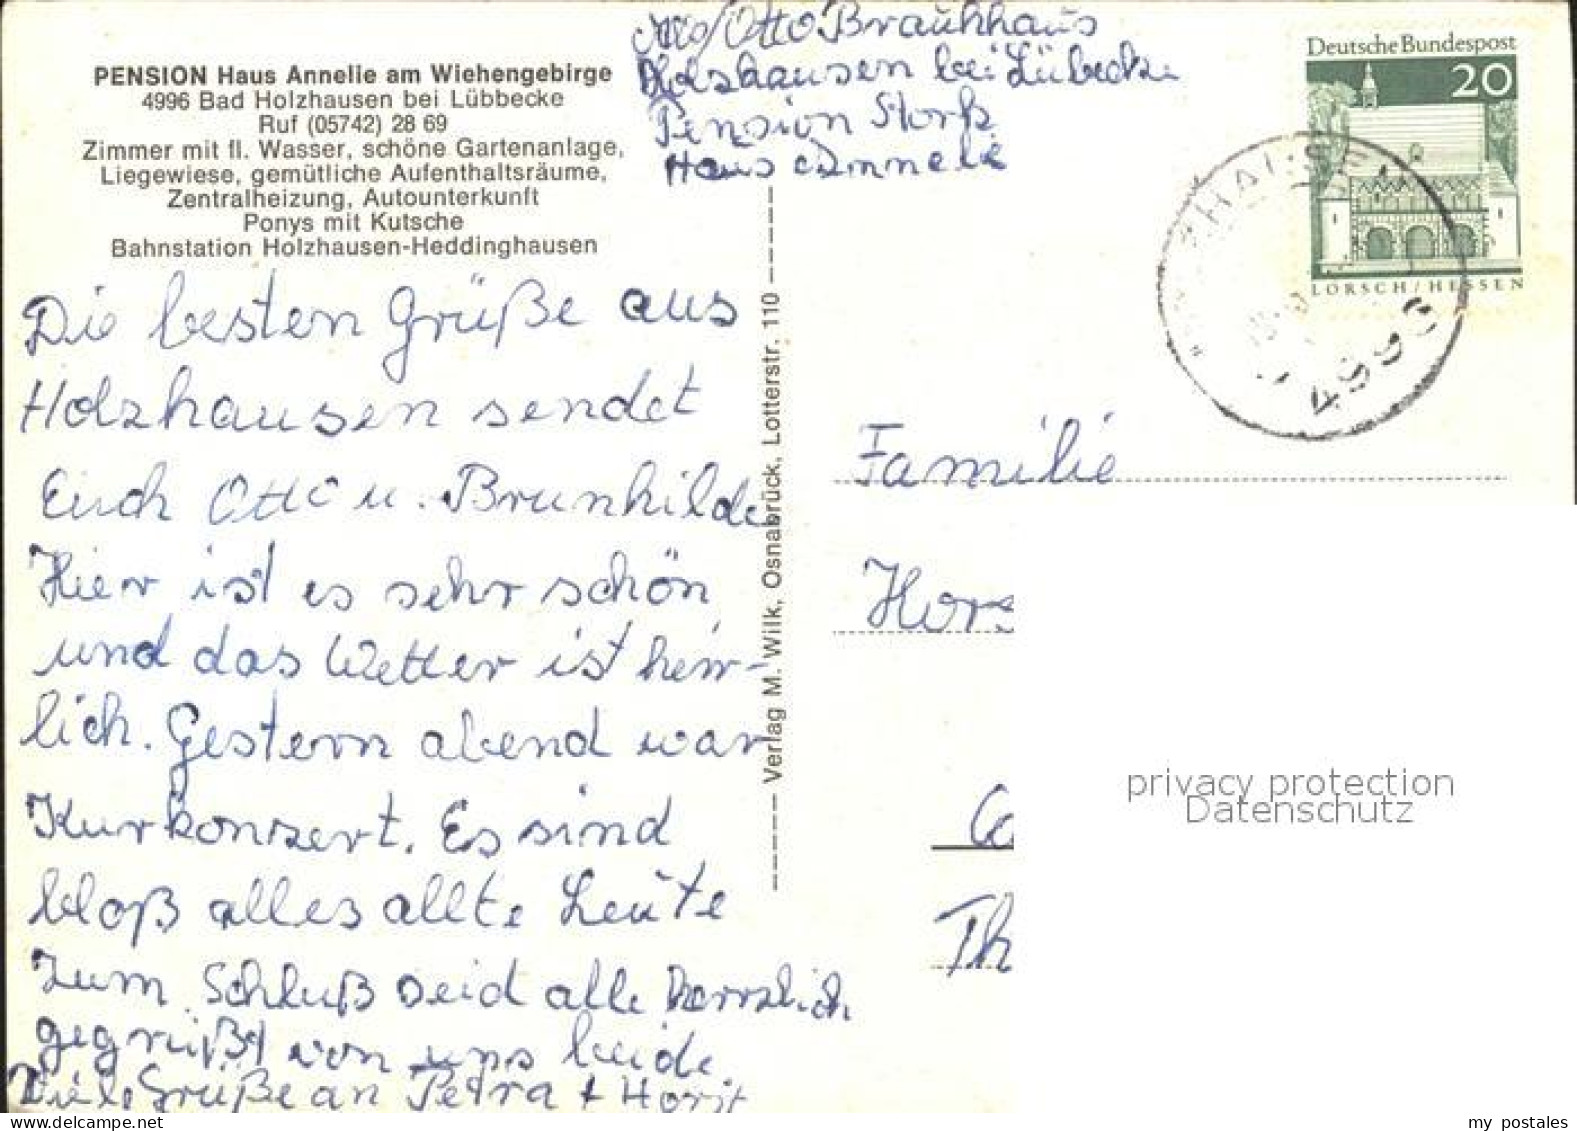 PENSION Haus Annelie am Wiehengebirge
4996 Bad Holzhausen bei Lübbecke
Ruf (05742) 28 69
Zimmer mit fl. Wasser, schöne Gartenanlage,
Liegewiese, gemütliche Aufenthaltsräume,
Zentralheizung, Autounterkunft
Ponys mit Kutsche
Bahnstation Holzhausen-Heddinghausen
Otto Braukhaus
Holzhausen bei Lübecke
Pension Stork
Haus Annelie
Deutsche Bundespost
20
LORSCH/HESSEN
4996
Die besten Grüße aus
Holzhausen sendet
Euch Otto u. Brunhilde
Hier ist es sehr schön
und das Wetter ist herr-
lich. Gestern abend war
Kurkonzert. Es sind
bloß alles allte Leute
Zum Schluß seid alle herzlich
gegrüßt von uns beide
Viele Grüße an Petra + Horst
Verlag M. Wilk, Osnabrück, Lotterstr. 110
Familie
Hors
Ca
Th
privacy protection
Datenschutz
my postales